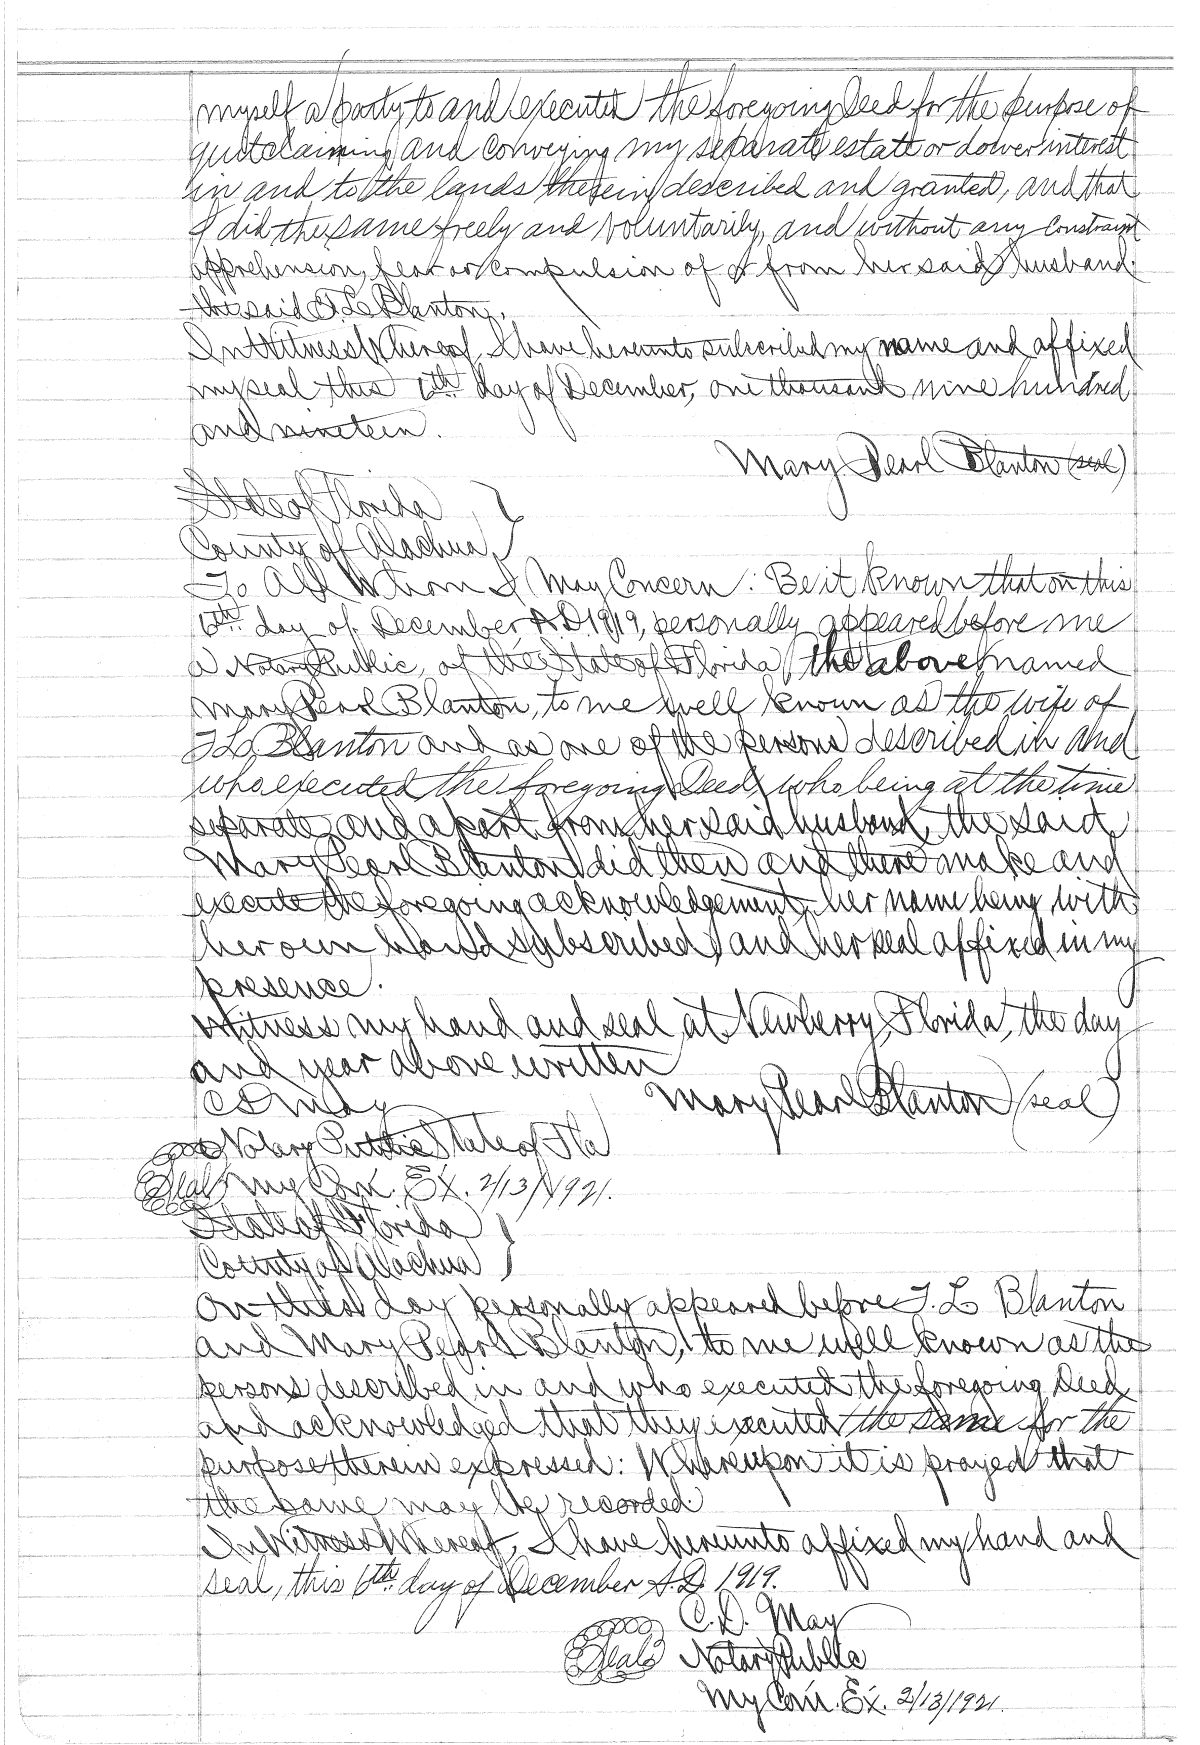 myself a party to and executed the foregoing Deed for the purpose of
quitclaiming and conveying my separate estate or dower interest
in and to the lands therein described and granted, and that
I did the same freely and voluntarily, and without any constraint
apprehension, fear or compulsion of or from her said husband
the said T. L. Blanton.
In Witness Whereof, I have hereunto subscribed my name and affixed
my seal this 6th day of December, one thousand nine hundred
and nineteen.
Mary Pearl Blanton (seal)
State of Florida }
County of Alachua, }
To All Whom I May Concern: Be it known that on this
6th day of December A.D. 1919, personally appeared before me
a Notary Public, of the State of Florida, the above named
Mary Pearl Blanton, to me well known as the wife of
T. L. Blanton and as one of the persons described in and
who executed the foregoing Deed, who being at the time
separate and apart from her said husband, the said
Mary Pearl Blanton did then and there make and
execute the foregoing acknowledgement, her name being with
her own hand subscribed, and her seal affixed in my
presence.
Witness my hand and seal at Newberry, Florida, the day
and year above written
C D May Mary Pearl Blanton (seal)
Notary Public State of Fla
Seal My Com. Ex. 2/13/1921.
State of Florida }
County of Alachua }
On this day personally appeared before T. L Blanton
and Mary Pearl Blanton, to me well known as the
persons described in and who executed the foregoing Deed
and acknowledged that they executed the same for the
purpose therein expressed: Whereupon it is prayed that
the same may be recorded.
In Witness Whereof, I have hereunto affixed my hand and
seal, this 6th day of December A.D. 1919.
C. D. May
Seal Notary Public
My Com. Ex. 2/13/1921.